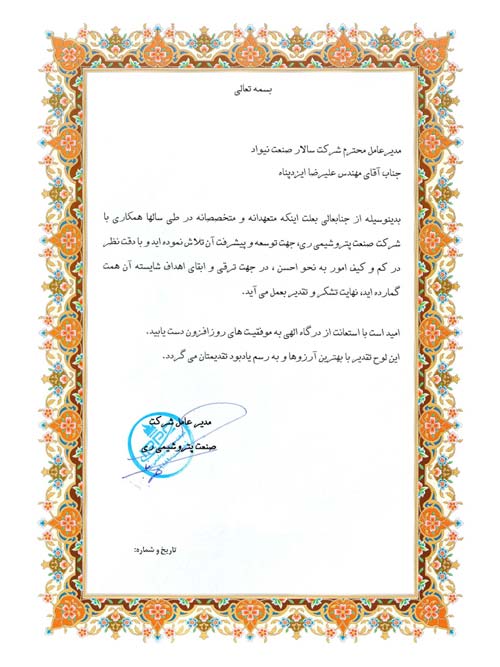 بسمه تعالی
مدیر عامل محترم شرکت سالار صنعت نیواد
جناب آقای مهندس علیرضا ایزدپناه
بدینوسیله از جنابعالی بعلت اینکه متعهدانه و متخصصانه در طی سالها همکاری با
شرکت صنعت پتروشیمی ری، جهت توسعه و پیشرفت آن تلاش نموده اید و با دقت نظر
در کم و کیف امور به نحو احسن ، در جهت ترقی و ابقای اهداف شایسته آن همت
گمارده اید، نهایت تشکر و تقدیر بعمل می آید.
امید است با استعانت از درگاه الهی به موفقیت های روزافزون دست یابید.
این لوح تقدیر با بهترین آرزوها و به رسم یادبود تقدیمتان می گردد.
مدیر عامل شرکت
صنعت پتروشیمی ری
تاریخ و شماره: